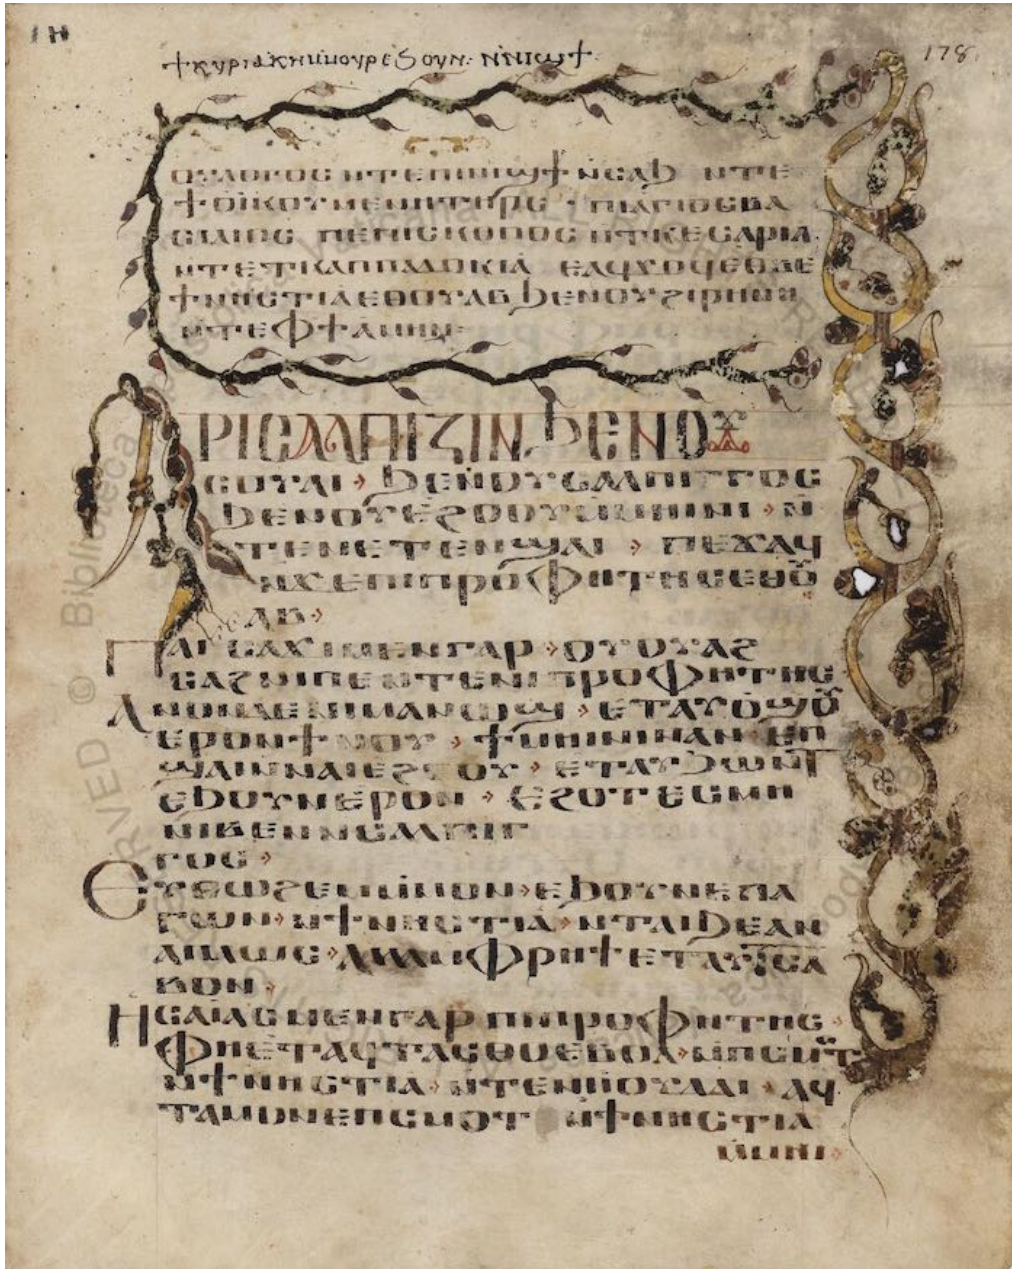 ⲓⲏ
ϯⲕⲩⲣⲓⲁⲕⲏ ⲙ̀ⲙⲟⲩⲣⲉϩⲟⲩⲛ: ⲛ̀ⲛⲓⲱϯ
178
ⲟⲩⲗⲟⲅⲟⲥ ⲛⲧⲉⲡⲓⲛⲓϣϯ ⲛⲥⲁϧ ⲛⲧⲉ
ϯⲟⲓⲕⲟⲩⲙⲉⲛⲏⲧⲏⲣⲥ · ⲡⲓⲁⲅⲓⲟⲥⲃⲁ
ⲥⲓⲗⲓⲟⲥ ⲡⲉⲡⲓⲥⲕⲟⲡⲟⲥ ⲛⲧⲕⲉⲥⲁⲣⲓⲁ
ⲛⲧⲉϯⲕⲁⲡⲡⲁⲇⲟⲕⲓⲁ ⲉⲁϥϫⲟϥⲉⲑⲃⲉ
ϯⲛⲏⲥⲧⲓⲁⲉⲑⲟⲩⲁⲃ ϧⲉⲛⲟⲩϩⲓⲣⲏⲛⲏ
ⲛⲧⲉⲫϯⲁⲙⲏⲛ
ⲁⲣⲓⲥⲁⲗⲡⲓⲍⲓⲛ ϧⲉⲛⲟⲩ
ⲥⲟⲩⲁⲓ · ϧⲉⲛⲟⲩⲥⲁⲗⲡⲓⲅⲅⲟⲥ
ϧⲉⲛⲟⲩⲉϩⲟⲟⲩⲙ̀ⲙⲏⲓⲛⲓ · ⲛ̀
ⲧⲉⲛⲉⲧⲉⲛϣⲁⲓ · ⲡⲉϫⲁϥ
ⲛϫⲉⲡⲓⲡⲣⲟⲫⲏⲧⲏⲥⲉⲑⲟ̅
ⲩⲁⲃ·
ⲡⲁⲓⲥⲁϫⲓ ⲙⲉⲛⲅⲁⲣ · ⲟⲩⲟⲩⲁϩ
ⲥⲁϩⲛⲓⲡⲉⲛⲧⲉⲛⲓⲡⲣⲟⲫⲏⲧⲏⲥ·
ⲁⲛⲟⲛⲇⲉⲛⲓⲙⲁⲛⲱϣ · ⲉⲧⲁⲩⲟϣⲟⲩ
ⲉⲣⲟⲛϯⲛⲟⲩ · ϯⲙⲏⲓⲛⲓⲛⲁⲛ
ϣⲁⲓⲛⲛⲁⲓⲉϩⲟⲟⲩ · ⲉⲧⲁⲩϧⲱⲛⲧ
ⲉϧⲟⲩⲛⲉⲣⲟⲛ · ⲉϩⲟⲧⲉⲥⲙⲏ
ⲛⲓⲃⲉⲛⲛⲥⲁⲗⲡⲓⲅ
ⲅⲟⲥ·
ⲉⲩⲑⲱϩⲉⲙⲙ̀ⲙⲟⲛ·ⲉϧⲟⲩⲛⲉⲡⲁ
ⲅⲱⲛ·ⲛϯⲛⲏⲥⲧⲓⲁ·ⲛⲧⲁⲓϧⲉⲁⲛ
ⲁⲡⲗⲱⲥ·ⲁⲗⲗⲁⲙⲫⲣⲏϯⲉⲧⲁⲩⲧⲥⲁ
ⲃⲟⲛ·
ⲏⲥⲁⲓⲁⲥⲙⲉⲛⲅⲁⲣⲡⲓⲡⲣⲟⲫⲏⲧⲏⲥ·
ⲫⲏⲉⲧⲁϥⲧⲁⲥⲑⲟⲉⲃⲟⲗ·ⲙⲡⲥⲙⲟⲧ
ⲛϯⲛⲏⲥⲧⲓⲁ·ⲛⲧⲉⲛⲓⲓⲟⲩⲇⲁⲓ·ⲁϥ
ⲧⲁⲙⲟⲛⲉⲡⲥⲙⲟⲧ ⲛϯⲛⲏⲥⲧⲓⲁ
ⲙ̀ⲙⲏⲓ·